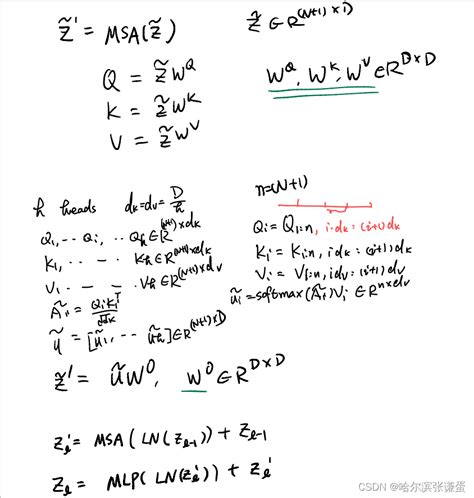 Z̃' = MSA(Z̃)
Z̃ ∈ R^{(N+1)×D}
Q = Z̃W^Q
K = Z̃W^K
V = Z̃W^V
W^Q, W^K, W^V ∈ R^{D×D}
h heads d_k=d_v= D/h
n=(N+1)
Q_1, ... Q_i, ... Q_h ∈ R^{(N+1)×d_k}
Q_i = Q_{1:n, i·d_k : (i+1)d_k}
K_1, ... K_h ∈ R^{(N+1)×d_k}
K_i = K_{1:n, i d_k : (i+1)d_k}
V_1 ... V_h ∈ R^{(N+1)×d_v}
V_i = V_{1:n, i d_v : (i+1)d_v}
Ã_i = Q_iK_i^T/√d_k
ũ_i = softmax(Ã_i)V_i ∈ R^{n×d_v}
ũ = [ũ_1, ... ũ_h] ∈ R^{(N+1)×D}
Z̃' = ũW^O, W^O ∈ R^{D×D}
Z_ℓ' = MSA(LN(Z_{ℓ-1})) + Z_{ℓ-1}
Z_ℓ = MLP(LN(Z_ℓ')) + Z_ℓ'
CSDN @哈尔滨张谦蛋